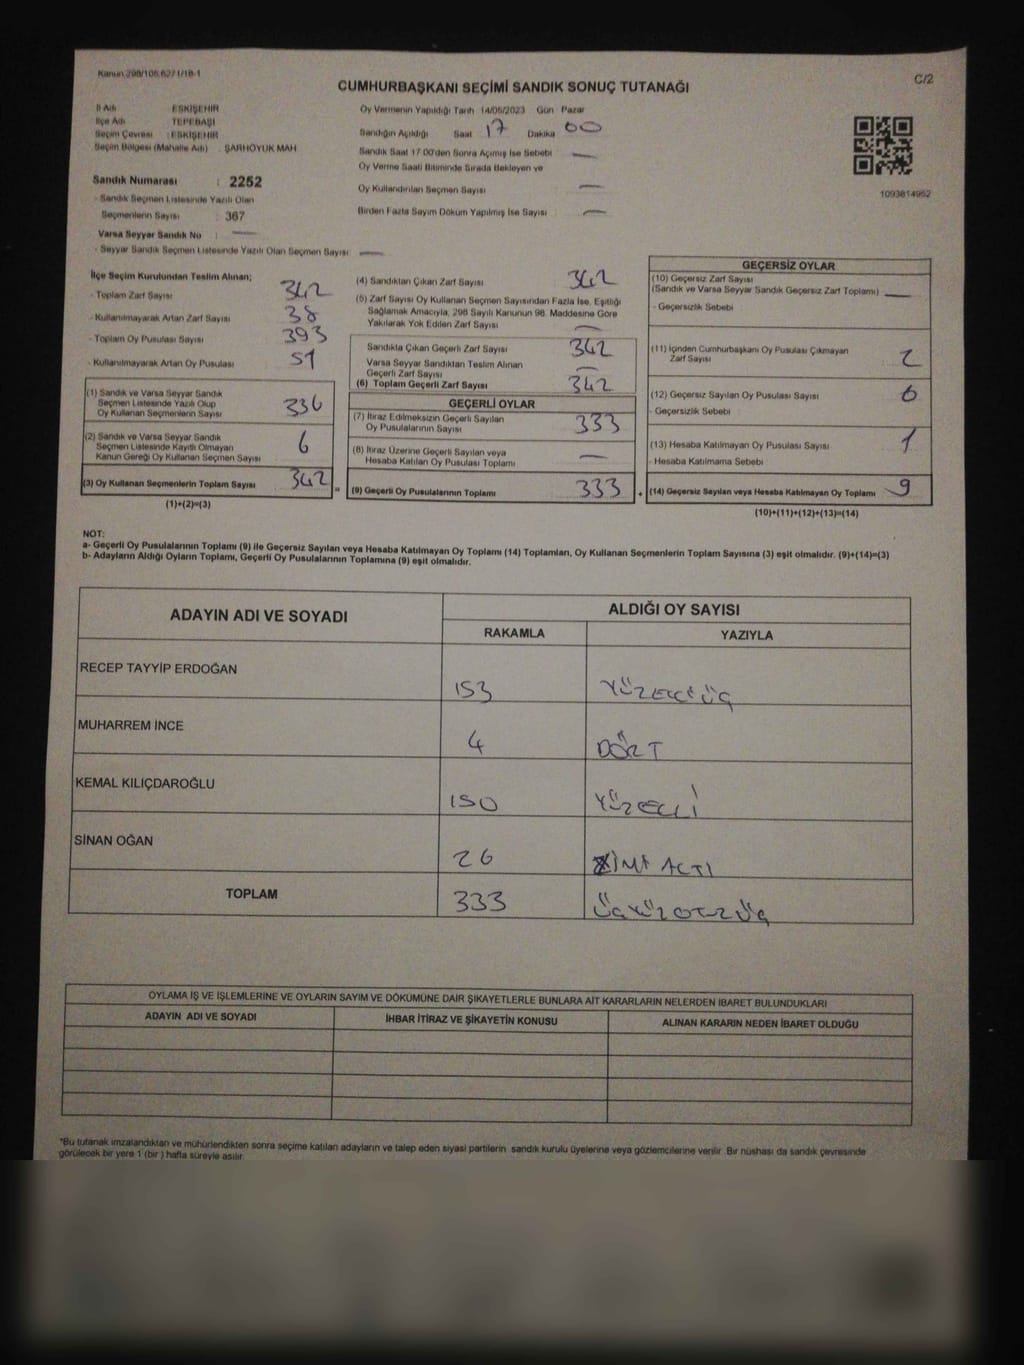 Kanun 298/106.627/1/18-1
C/2
CUMHURBAŞKANI SEÇİMİ SANDIK SONUÇ TUTANAĞI
İl Adı : ESKİŞEHİR
İlçe Adı : TEPEBAŞI
Seçim Çevresi : ESKİŞEHİR
Seçim Bölgesi (Mahalle Adı) : ŞARHÖYÜK MAH
Sandık Numarası : 2252
- Sandık Seçmen Listesinde Yazılı Olan
Seçmenlerin Sayısı : 367
Varsa Seyyar Sandık No : —
- Seyyar Sandık Seçmen Listesinde Yazılı Olan Seçmen Sayısı —
Oy Vermenin Yapıldığı Tarih 14/05/2023 Gün Pazar
Sandığın Açıldığı Saat 17 Dakika 00
Sandık Saat 17:00'den Sonra Açımış İse Sebebi —
Oy Verme Saati Bitiminde Sırada Bekleyen ve
Oy Kullandırılan Seçmen Sayısı —
Birden Fazla Sayım Döküm Yapılmış İse Sayısı —
1093814952
İlçe Seçim Kurulundan Teslim Alınan;
- Toplam Zarf Sayısı 342
- Kullanılmayarak Artan Zarf Sayısı 38
- Toplam Oy Pusulası Sayısı 393
- Kullanılmayarak Artan Oy Pusulası 51
(1) Sandık ve Varsa Seyyar Sandık
Seçmen Listesinde Yazılı Olup
Oy Kullanan Seçmenlerin Sayısı 336
(2) Sandık ve Varsa Seyyar Sandık
Seçmen Listesinde Kayıtlı Olmayan
Kanun Gereği Oy Kullanan Seçmen Sayısı 6
(3) Oy Kullanan Seçmenlerin Toplam Sayısı 342 =
(1)+(2)=(3)
(4) Sandıktan Çıkan Zarf Sayısı 342
(5) Zarf Sayısı Oy Kullanan Seçmen Sayısından Fazla İse, Eşitliği
Sağlamak Amacıyla, 298 Sayılı Kanunun 98. Maddesine Göre
Yakılarak Yok Edilen Zarf Sayısı —
Sandıkta Çıkan Geçerli Zarf Sayısı 342
Varsa Seyyar Sandıktan Teslim Alınan
Geçerli Zarf Sayısı —
(6) Toplam Geçerli Zarf Sayısı 342
GEÇERLİ OYLAR
(7) İtiraz Edilmeksizin Geçerli Sayılan
Oy Pusulalarının Sayısı 333
(8) İtiraz Üzerine Geçerli Sayılan veya
Hesaba Katılan Oy Pusulası Toplamı —
(9) Geçerli Oy Pusulalarının Toplamı 333 +
GEÇERSİZ OYLAR
(10) Geçersiz Zarf Sayısı
(Sandık ve Varsa Seyyar Sandık Geçersiz Zarf Toplamı) —
- Geçersizlik Sebebi
(11) İçinden Cumhurbaşkanı Oy Pusulası Çıkmayan
Zarf Sayısı 2
(12) Geçersiz Sayılan Oy Pusulası Sayısı 6
- Geçersizlik Sebebi
(13) Hesaba Katılmayan Oy Pusulası Sayısı 1
- Hesaba Katılmama Sebebi
(14) Geçersiz Sayılan veya Hesaba Katılmayan Oy Toplamı 9
(10)+(11)+(12)+(13)=(14)
NOT:
a- Geçerli Oy Pusulalarının Toplamı (9) ile Geçersiz Sayılan veya Hesaba Katılmayan Oy Toplamı (14) Toplamları, Oy Kullanan Seçmenlerin Toplam Sayısına (3) eşit olmalıdır. (9)+(14)=(3)
b- Adayların Aldığı Oyların Toplamı, Geçerli Oy Pusulalarının Toplamına (9) eşit olmalıdır.
ADAYIN ADI VE SOYADI
ALDIĞI OY SAYISI
RAKAMLA YAZIYLA
RECEP TAYYİP ERDOĞAN 153 YÜZELLİÜÇ
MUHARREM İNCE 4 DÖRT
KEMAL KILIÇDAROĞLU 150 YÜZELLİ
SİNAN OĞAN 26 ALTI
TOPLAM 333 ÜÇYÜZOTUZÜÇ
OYLAMA İŞ VE İŞLEMLERİNE VE OYLARIN SAYIM VE DÖKÜMÜNE DAİR ŞİKAYETLERLE BUNLARA AİT KARARLARIN NELERDEN İBARET BULUNDUKLARI
ADAYIN ADI VE SOYADI İHBAR İTİRAZ VE ŞİKAYETİN KONUSU ALINAN KARARIN NEDEN İBARET OLDUĞU
*Bu tutanak imzalandıktan ve mühürlendikten sonra seçime katılan adayların ve talep eden siyasi partilerin sandık kurulu üyelerine veya gözlemcilerine verilir. Bir nüshası da sandık çevresinde
görülecek bir yere 1 (bir) hafta süreyle asılır.